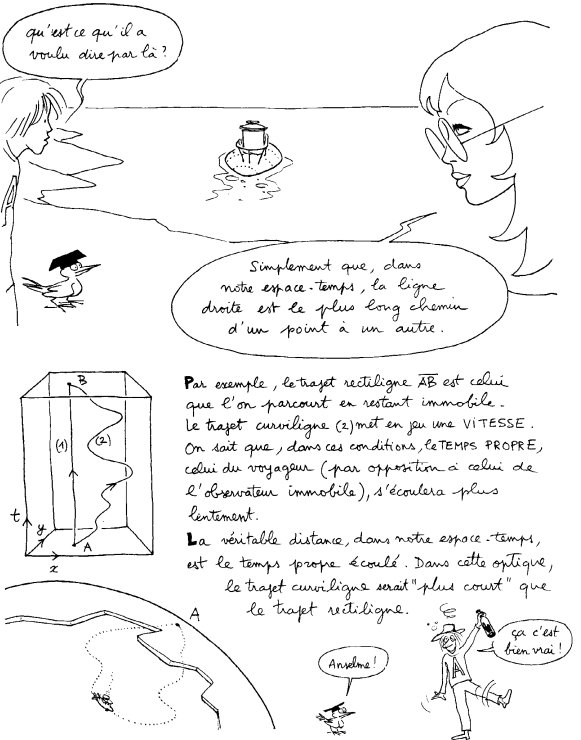 qu'est ce qu'il a
voulu dire par là?
Simplement que, dans
notre espace-temps, la ligne
droite est le plus long chemin
d'un point à un autre.
B
(1)
(2)
A
t
y
x
Par exemple, le trajet rectiligne AB est celui
que l'on parcourt en restant immobile.
Le trajet curviligne (2) met en jeu une VITESSE.
On sait que, dans ces conditions, le TEMPS PROPRE,
celui du voyageur (par opposition à celui de
l'observateur immobile), s'écoulera plus
lentement.
La véritable distance, dans notre espace-temps,
est le temps propre écoulé. Dans cette optique,
le trajet curviligne serait "plus court" que
le trajet rectiligne.
A
Anselme!
ça c'est
bien vrai!
A
A